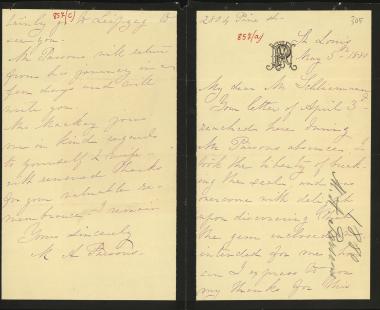 2804 Pine st.
305
857(a)
St Louis
May 5th 1880
My dear Mr Schliemann
Your letter of April 3d
reached here during
Mr Parsons absence, I
took the liberty of break
ing the seal, and was
overcome with delight
upon discovering
the gem enclosed
intended for me. How
can I express to you
my thanks for this
857(c)
to Leipzig to
see you.
Mr Parsons will return
from his journey in a
few days and will
write you.
Mrs Mackay joins
me in kind regards
to yourself & wife.
With renewed thanks
for your valuable re-
membrance, I remain
Yours sincerely
M A Parsons.